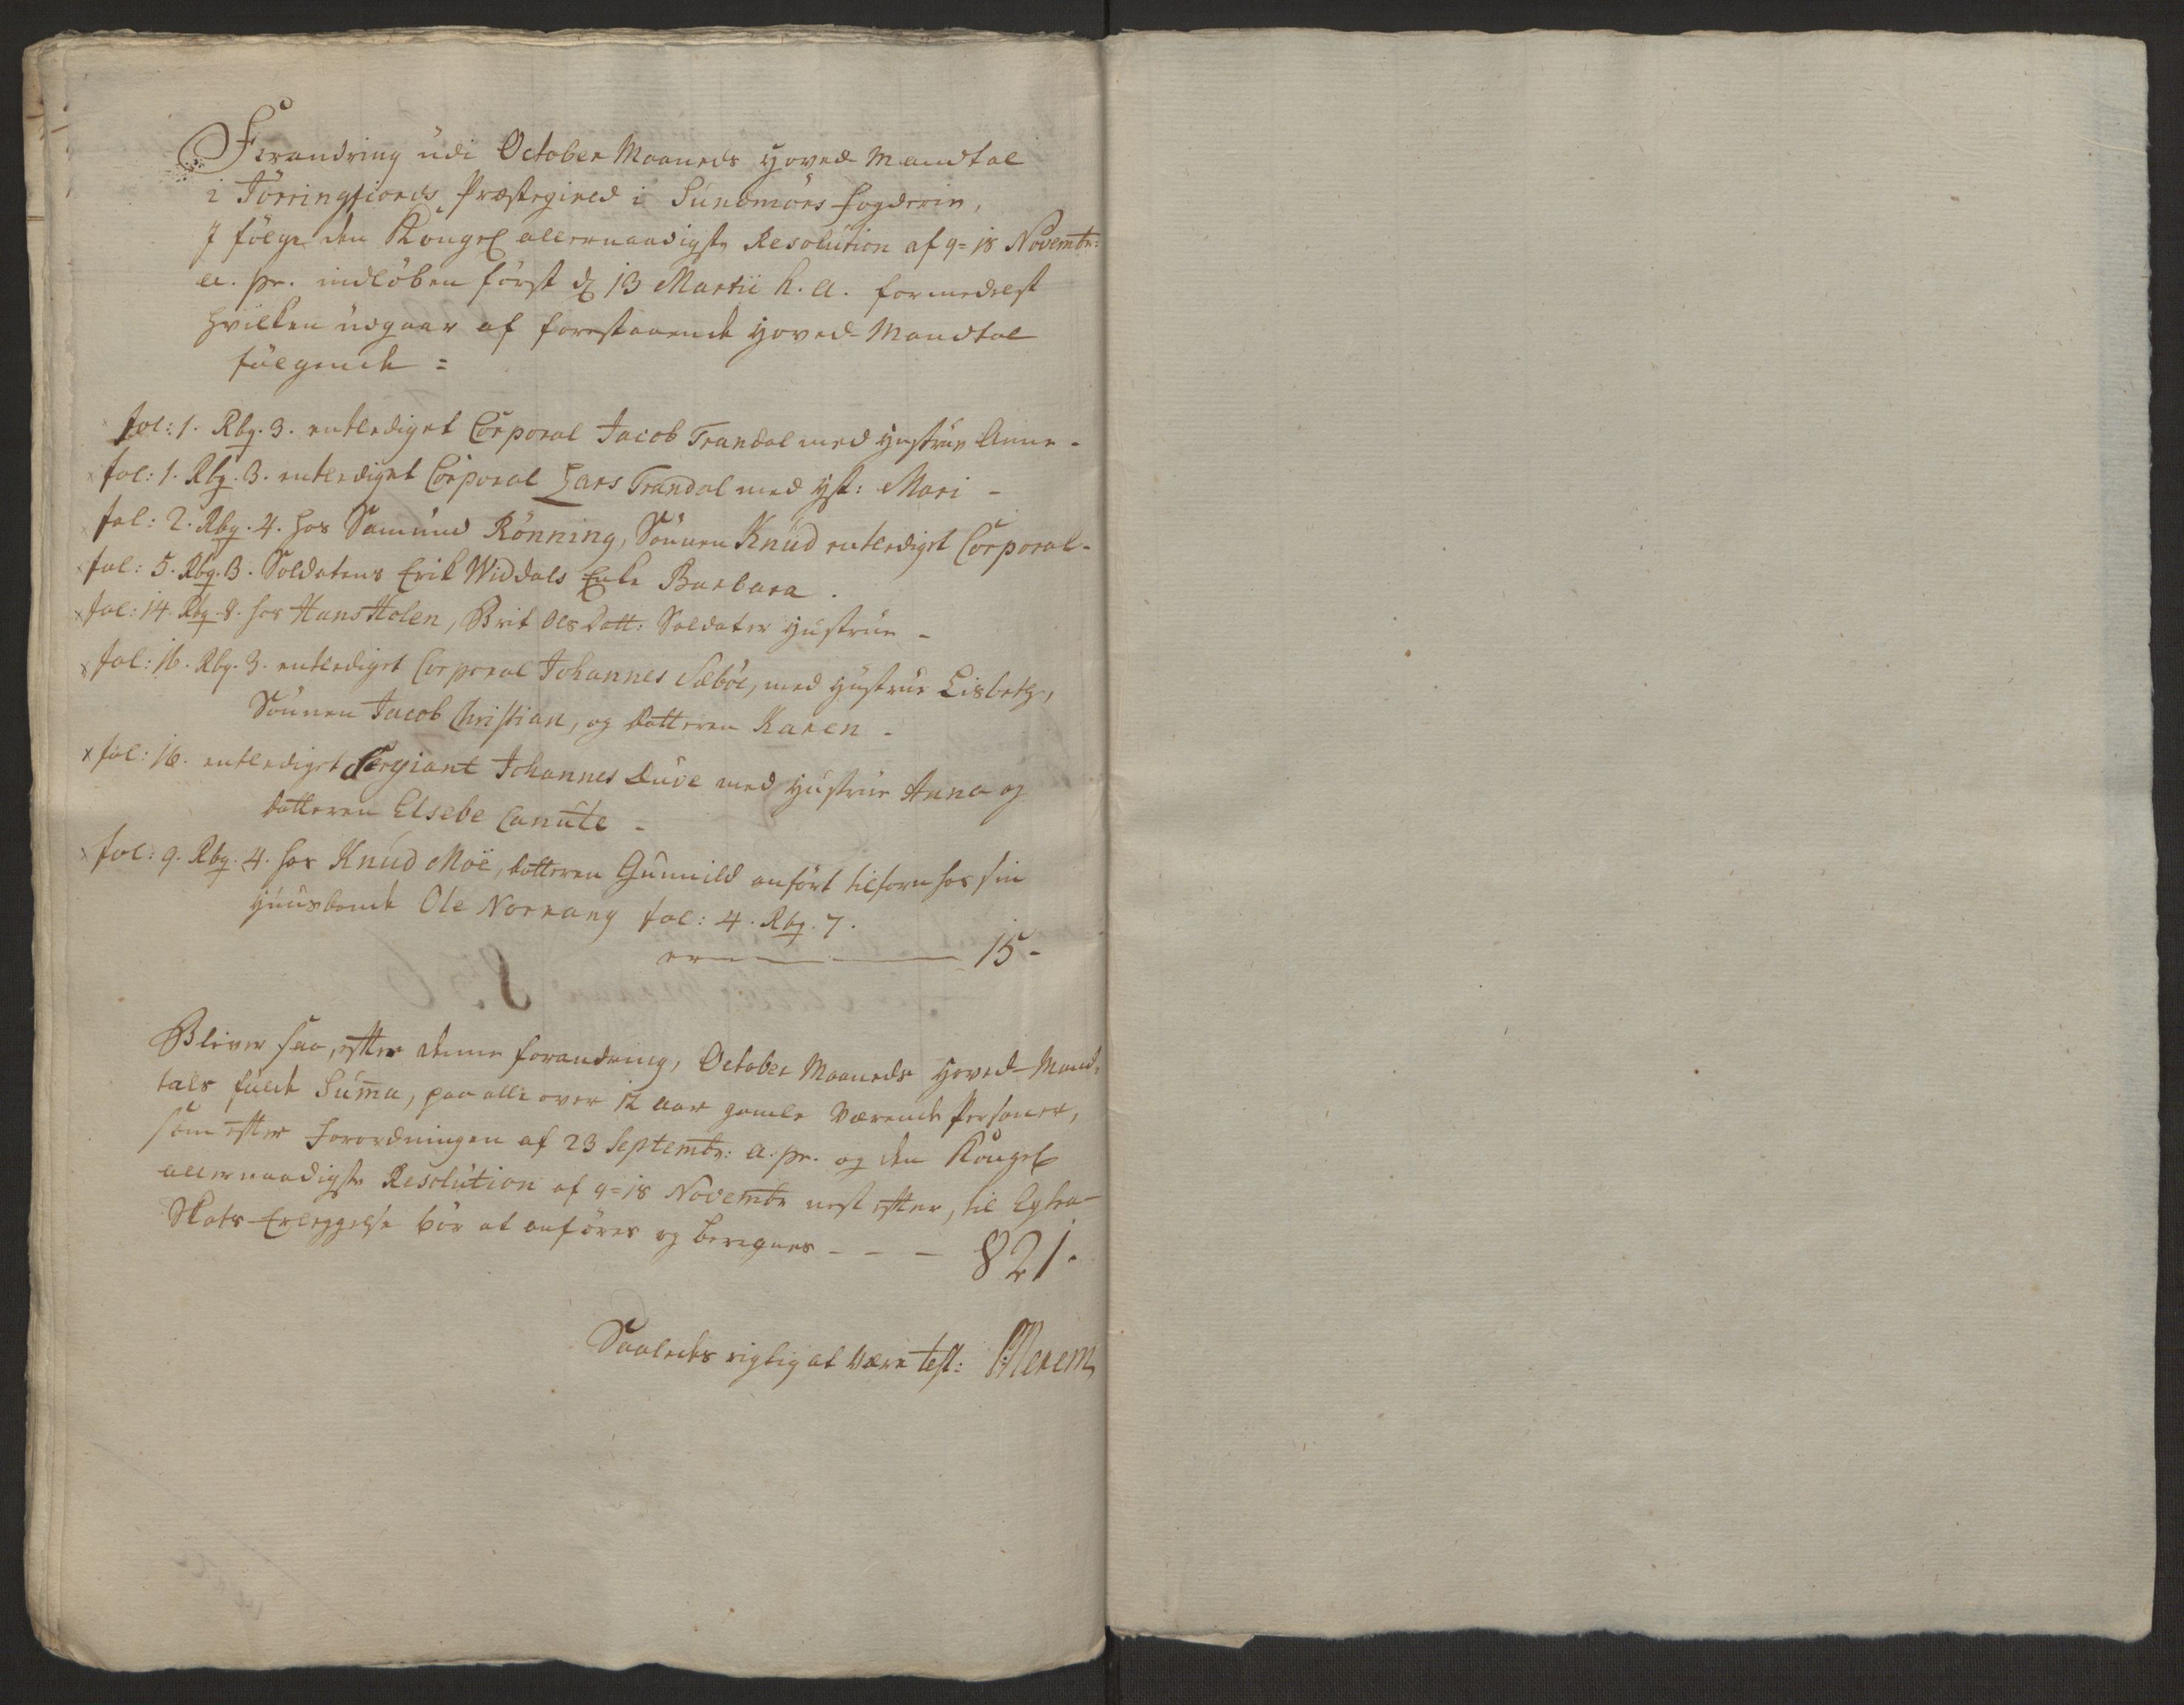 Forandring udi October Maaneds Hoved-Mandtal
i Jörringfiords Præstegield i Sundmörs Fogderie,
J fölge den Kongel allernaadigste Resolution af 9=18 Novembr:
a. pr. indlöben först d 13 Martii h. a. formedelst
hvilken udgaar af forestaaende Hoved-Mandtal
fölgende =
fol: 1. Rbg. 3. entlediget Corporal Jacob Trandal med Hustrue Anne -
x fol: 1. Rbg. 3. entlediget Corporal Lars Trandal med Hst: Mari -
x fol: 2. Rbg. 4. hos Samund Rönning, Sönnen Knud entlediget Corporal -
x fol: 5. Rbg. 3. Soldatens Erik Widdals Enke Barbara .
x fol: 14. Rbg. 8. hos Hans Holen, Brit Ols Dott: Soldater Hustrue -
x fol: 16. Rbg. 3. entlediget Corporal Johannes Sæböe, med Hustrue Lisbeth,
Sönnen Jacob Christian, og Datteren Karen -
x fol: 16. entlediget Sergiant Johannes Duve med Hustrue Anna og
Datteren Elsebe Canute -
x fol: 9. Rbg. 4. hos Knud Moe, Datteren Gunnild anfört tilforn hos sin
Huusbonde Ole Norrang fol: 4. Rbg. 7.
ere — — 15 -
Bliver saa, efter denne forandring, October Maaneds Hoved-Mand-
tals fulde Suma, paa alle over 12 aar gamle værende Personer,
som efter Forordningen af 23 Septembr: a. pr. og den Kongel
allernaadigste Resolution af 9=18 Novembr nest efter, til Extra-
Skats-Erleggelse bör at anföres og beregnes - - - 821.
Saaledes rigtig at være test: